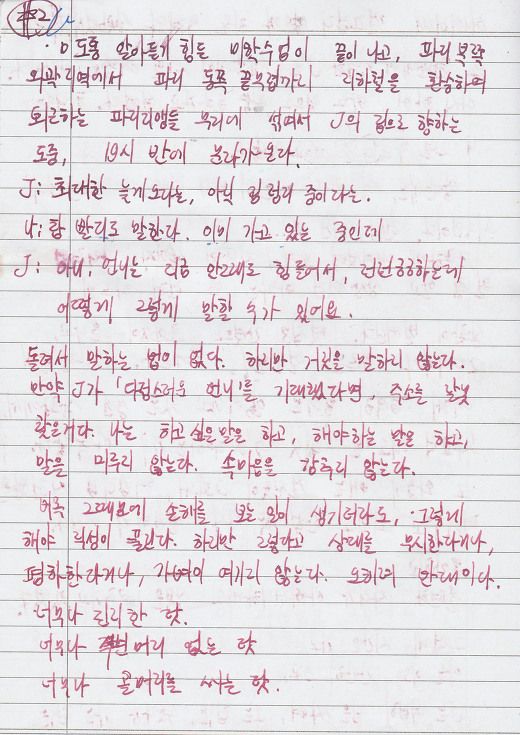 #32
· 이 도통 알아듣기 힘든 미학수업이 끝이 나고, 파리 북쪽
외곽지역에서 파리 동쪽 끝부렵까지 지하철을 환승하며
퇴근하는 파리지앵들 무리에 섞여서 J의 집으로 향하는
도중, 19시 반에 문자가 온다.
J: 최대한 늦게 오라는, 아직 집 정리 중이라는.
나: 참 빨리도 말한다. 이미 가고 있는 중인데
J: 아니, 언니는 지금 안그래도 힘들어서, 전전긍긍하는데
어떻게 그렇게 말할 수가 있어요.
돌려서 말하는 법이 없다. 하지만 거짓을 말하지 않는다.
만약 J가 「다정스러운 언니」를 기대했다면, 주소를 잘못
찾은거다. 나는 하고싶은말은 하고, 해야하는 말은 하고,
말을 미루지 않는다. 속마음을 감추지 않는다.
비록 그때문에 손해를 보는 일이 생기더라도, 그렇게
해야 직성이 풀린다. 하지만 그렇다고 상대를 무시한다거나,
폄하한다거나, 가벼이 여기지 않는다. 오히려 반대이다.
너무나 진지한 탓.
너무나 주변머리 없는 탓
너무나 골머리를 싸는 탓.